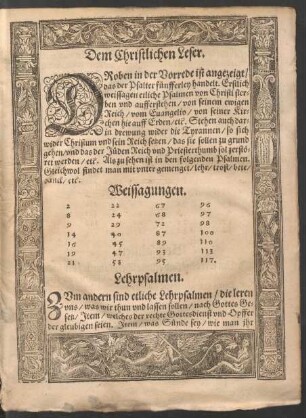 Dem Christlichen Leser.
DRoben in der Vorrede ist angezeigt/
das der Psalter fünfferley handelt. Erstlich
weissagen etliche Psalmen von Christi ster-
ben und aufferstehen/ von seinem ewigen
Reich/ vom Euangelio/ von seiner Kir-
chen hie auff Erden/ etc. Stehen auch dar-
in drewung wider die Tyrannen/ so sich
wider Christum und sein Reich setzen/ das sie sollen zu grund
gehen/ und das der Jüden Reich und Priesterthumb sol zerstö-
ret werden/ etc. Als zu sehen ist in den folgenden Psalmen.
Gleichwol findet man mit unter gemenget/ lehr/ trost/ bitt/
danck/ etc.
Weissagungen.
2 22 67 96
8 24 68 97
9 29 72 98
14 40 87 100
16 45 89 110
19 47 93
21 53 95 117.
Lehrpsalmen.
ZUm andern sind etliche Lehrpsalmen/ die leren
uns/ was wir thun und lassen sollen/ nach Gottes Ge-
setz/ Item/ welches der rechte Gottesdienst und Opffer
der gleubigen seien. Item/ was Sünde sey/ wie man ihr